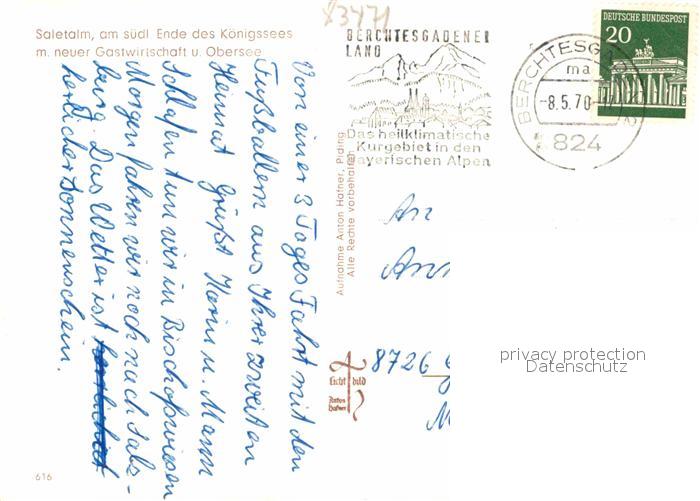 Saletalm, am südl. Ende des Königssees
m. neuer Gastwirtschaft u. Obersee
Von einer 3 Tages Fahrt mit den
Fußballern aus Ihrer zweiten
Heimat Grüßt Karin u. Mann
Schlafen tun wir in Bischofswiesen
Morgen fahren wir noch nach Salz-
burg. Das Wetter ist
herrlicher Sonnenschein.
616
Aufnahme Anton Hafner, Piding
Alle Rechte vorbehalten
Licht bild
Anton
Hafner
83471
BERCHTESGADENER
LAND
Das heilklimatische
Kurgebiet in den
Bayerischen Alpen
BERCHTESGADEN
ma
-8.5.70-17
824
DEUTSCHE BUNDESPOST
20
An
8726
privacy protection
Datenschutz